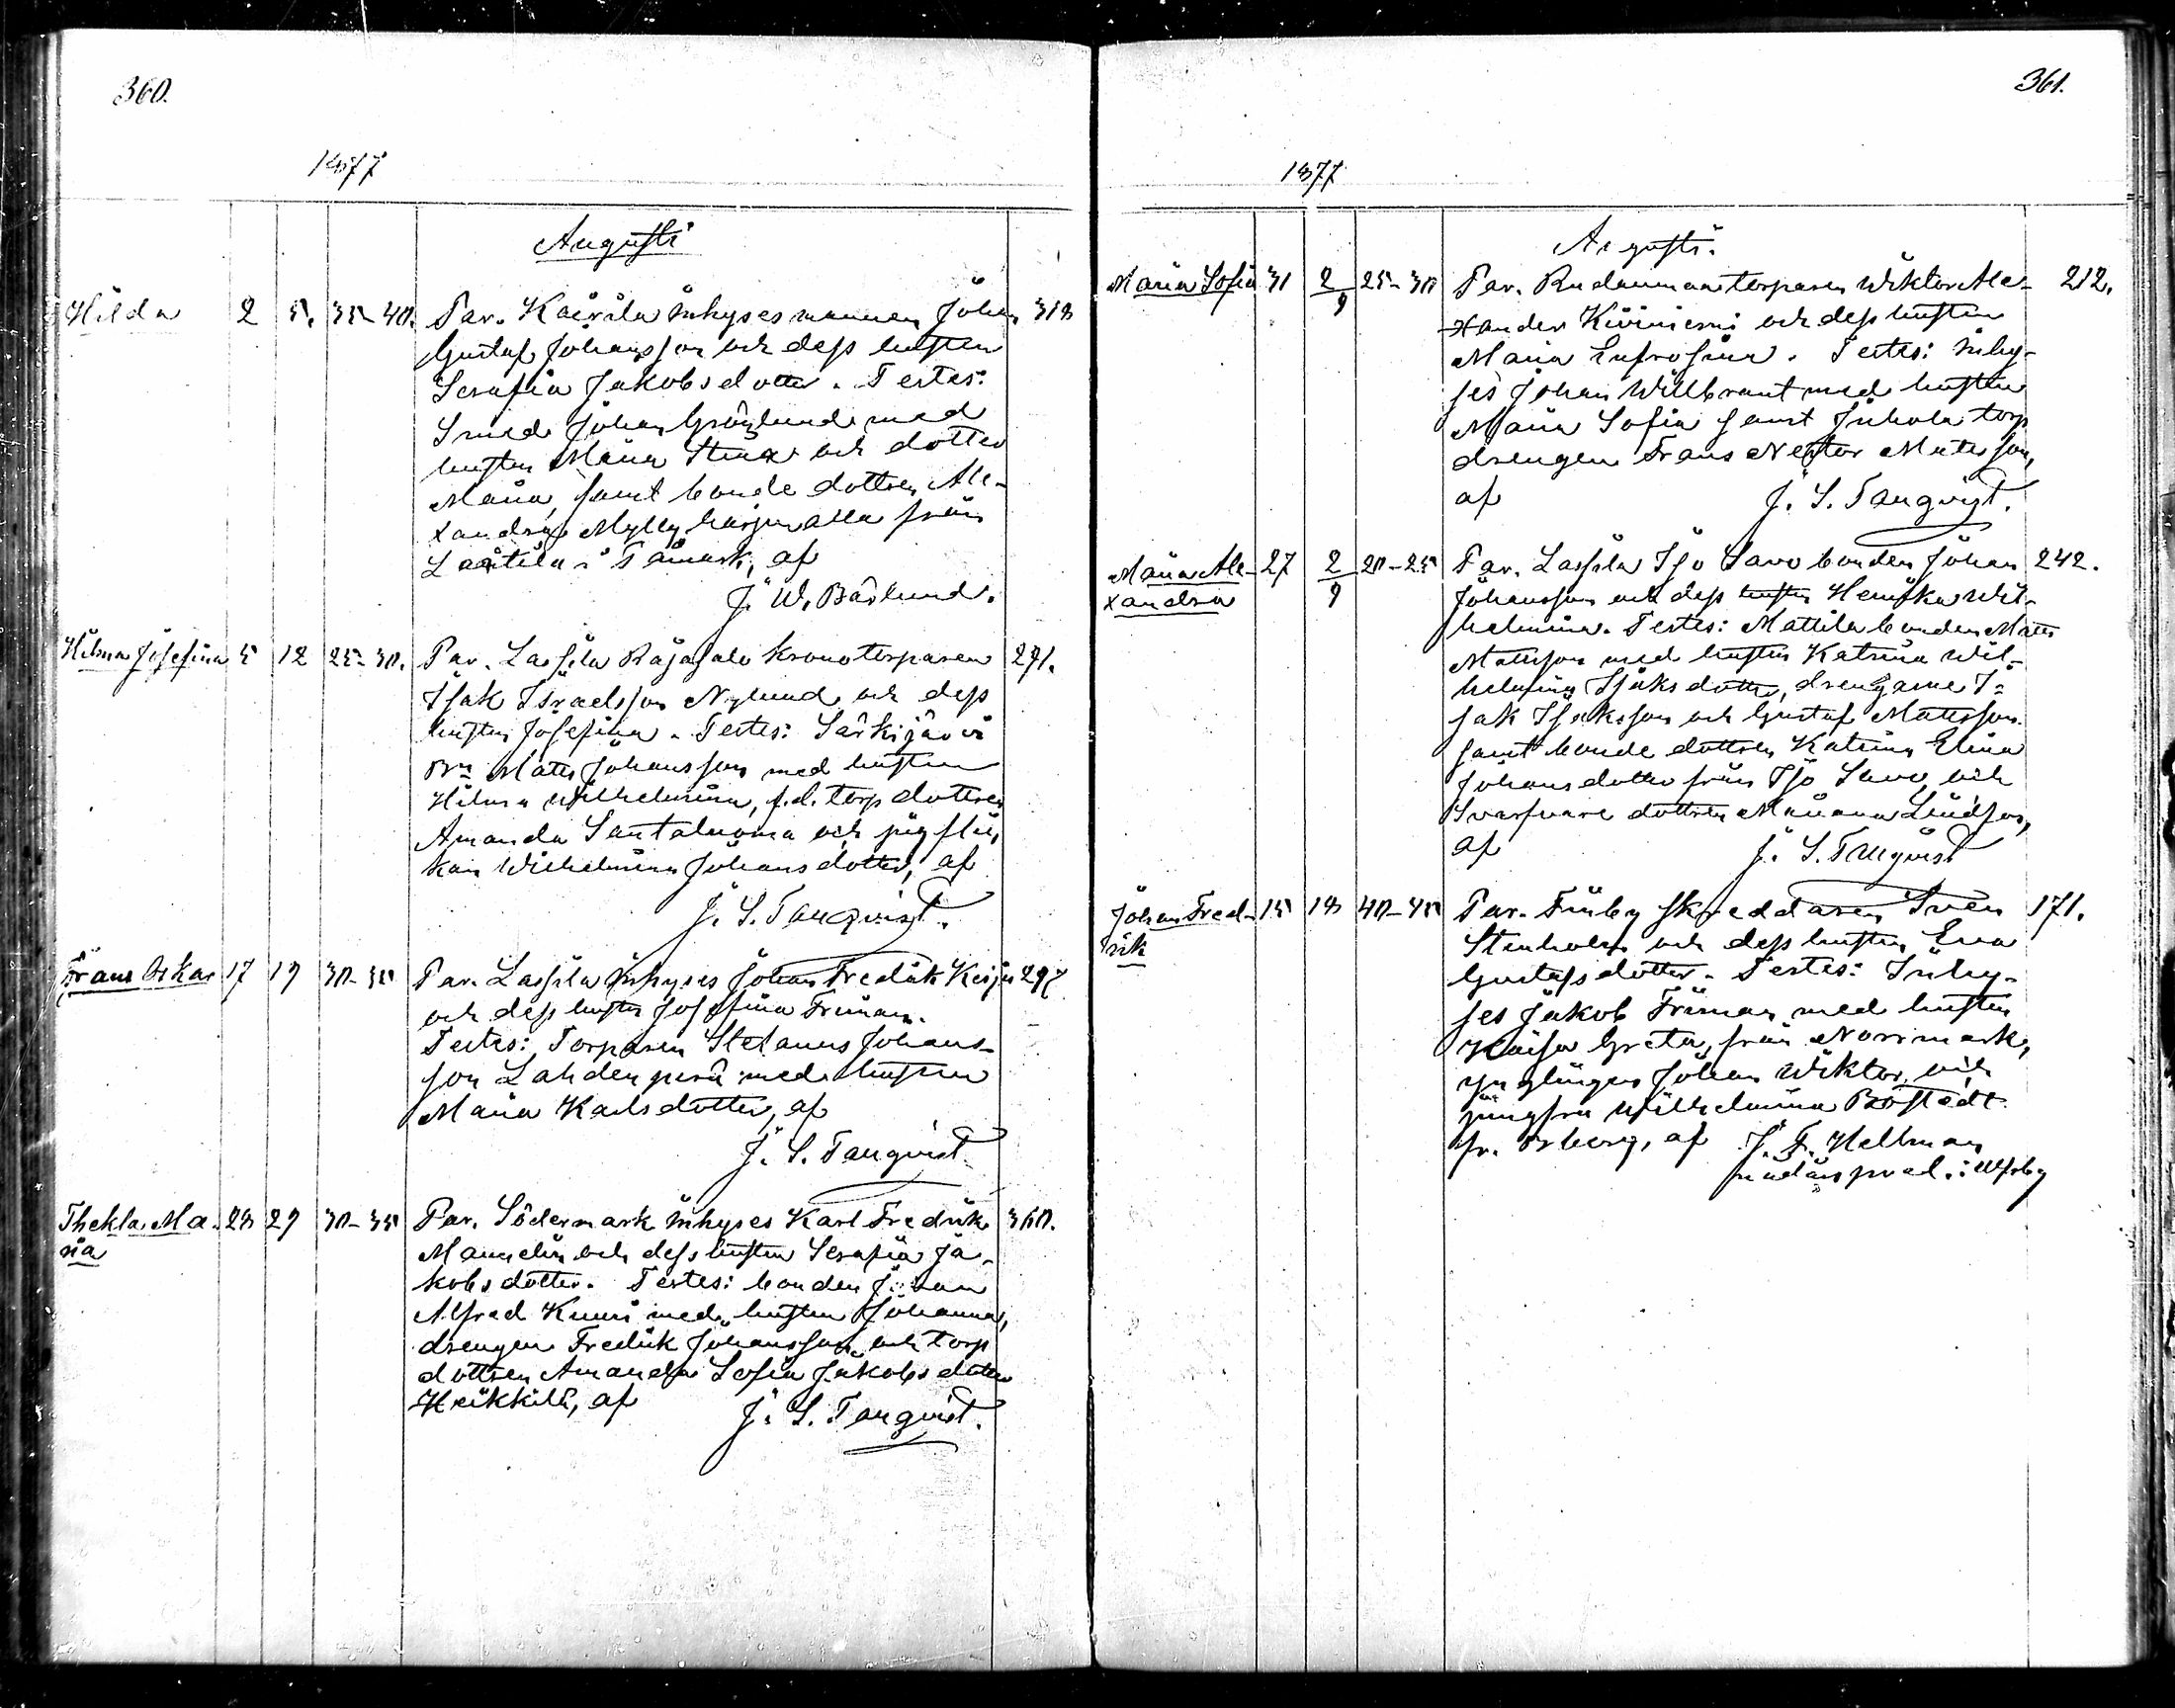 360.
1877
Augusti
Hilda 2 5. 35-40. Par. Kairila inhysesmannen Johan 318
Gustaf Johansson och dess hustru
Serafia Jakobsdotter. Testes:
Smed Johan Grönlund med
hustru Maria Stina och dotter
Maria, samt bonde dottren Ale-
xandra Myllyharjunalla från
Laitila i Tämark, af
J. W. Bärlund.
Hilma Josefina 5 12 25-30. Par. Lassila Rajasalo kronotorparen 291.
Isak Israelsson Nylund och dess
hustru Josefina. Testes: Särkijärvi
Bn Matts Johansson med hustrun
Hilma Wilhelmina, f.d. torp dottren
Amanda Santaluoma och pig flic
kan Wilhelmina Johansdotter, af
J. S. Tanqvist.
Frans Oskar 17 19 30-35 Par. Lassila inhyses Johan Fredrik Keiju 297
och dess hustru Josefina Friman.
Testes: Torparen Stefanus Johans-
son Lahdenperä med hustrun
Maria Karlsdotter, af
J. S. Tanqvist
Thekla Ma- 28 29 30-35 Par. Södermark inhyses Karl Fredrik 360.
ria
Mannelin och dess hustru Serafia Ja-
kobsdotter. Testes: bonden Johan
Alfred Kuuri med hustrun Johanna,
drengen Fredrik Johansson och torp
dottren Amanda Sofia Jakobsdotter
Heikkilä, af J. S. Tanqvist.
361.
1877
Augusti.
Maria Sofia 31 2/9 25-30 Par. Rudanmaa torparen Wiktor Ale- 212.
xander Kiviniemi och dess hustru
Maria Eufrosina. Testes: inhy-
ses Johan Willbrant med hustru
Maria Sofia samt Juhola torp
drengen Frans Nestor Matsson,
af J. S. Tanqvist.
Maria Ale- 27 2/9 20-25 Par. Lassila Iso Savo bonden Johan 242.
xandra
Johansson och dess hustru Henrika Wil-
helmina. Testes: Mattila bonden Matts
Mattsson med hustru Katrina Wil-
helmina Isaksdotter, drengarne I-
sak Isaksson och Gustaf Matsson
samt bonde dottren Katrina Elina
Johansdotter från Iso Savo, och
Svarfvare dottren Mariana Lindfors,
af J. S. Tanqvist
Johan Fred- 15 18 40-45 Par. Finby skreddaren Sven 171.
rik
Stenholm och dess hustru Eva
Gustafsdotter. Testes: Inhy-
ses Jakob Friman med hustru
Kaisa Greta, från Norrmark,
ynglingen Johan Wiktor och
jungfru Wilhelmina Bostedt
fr. Bberg, af J. F. Hellman
nådårspred. i Ulfsby